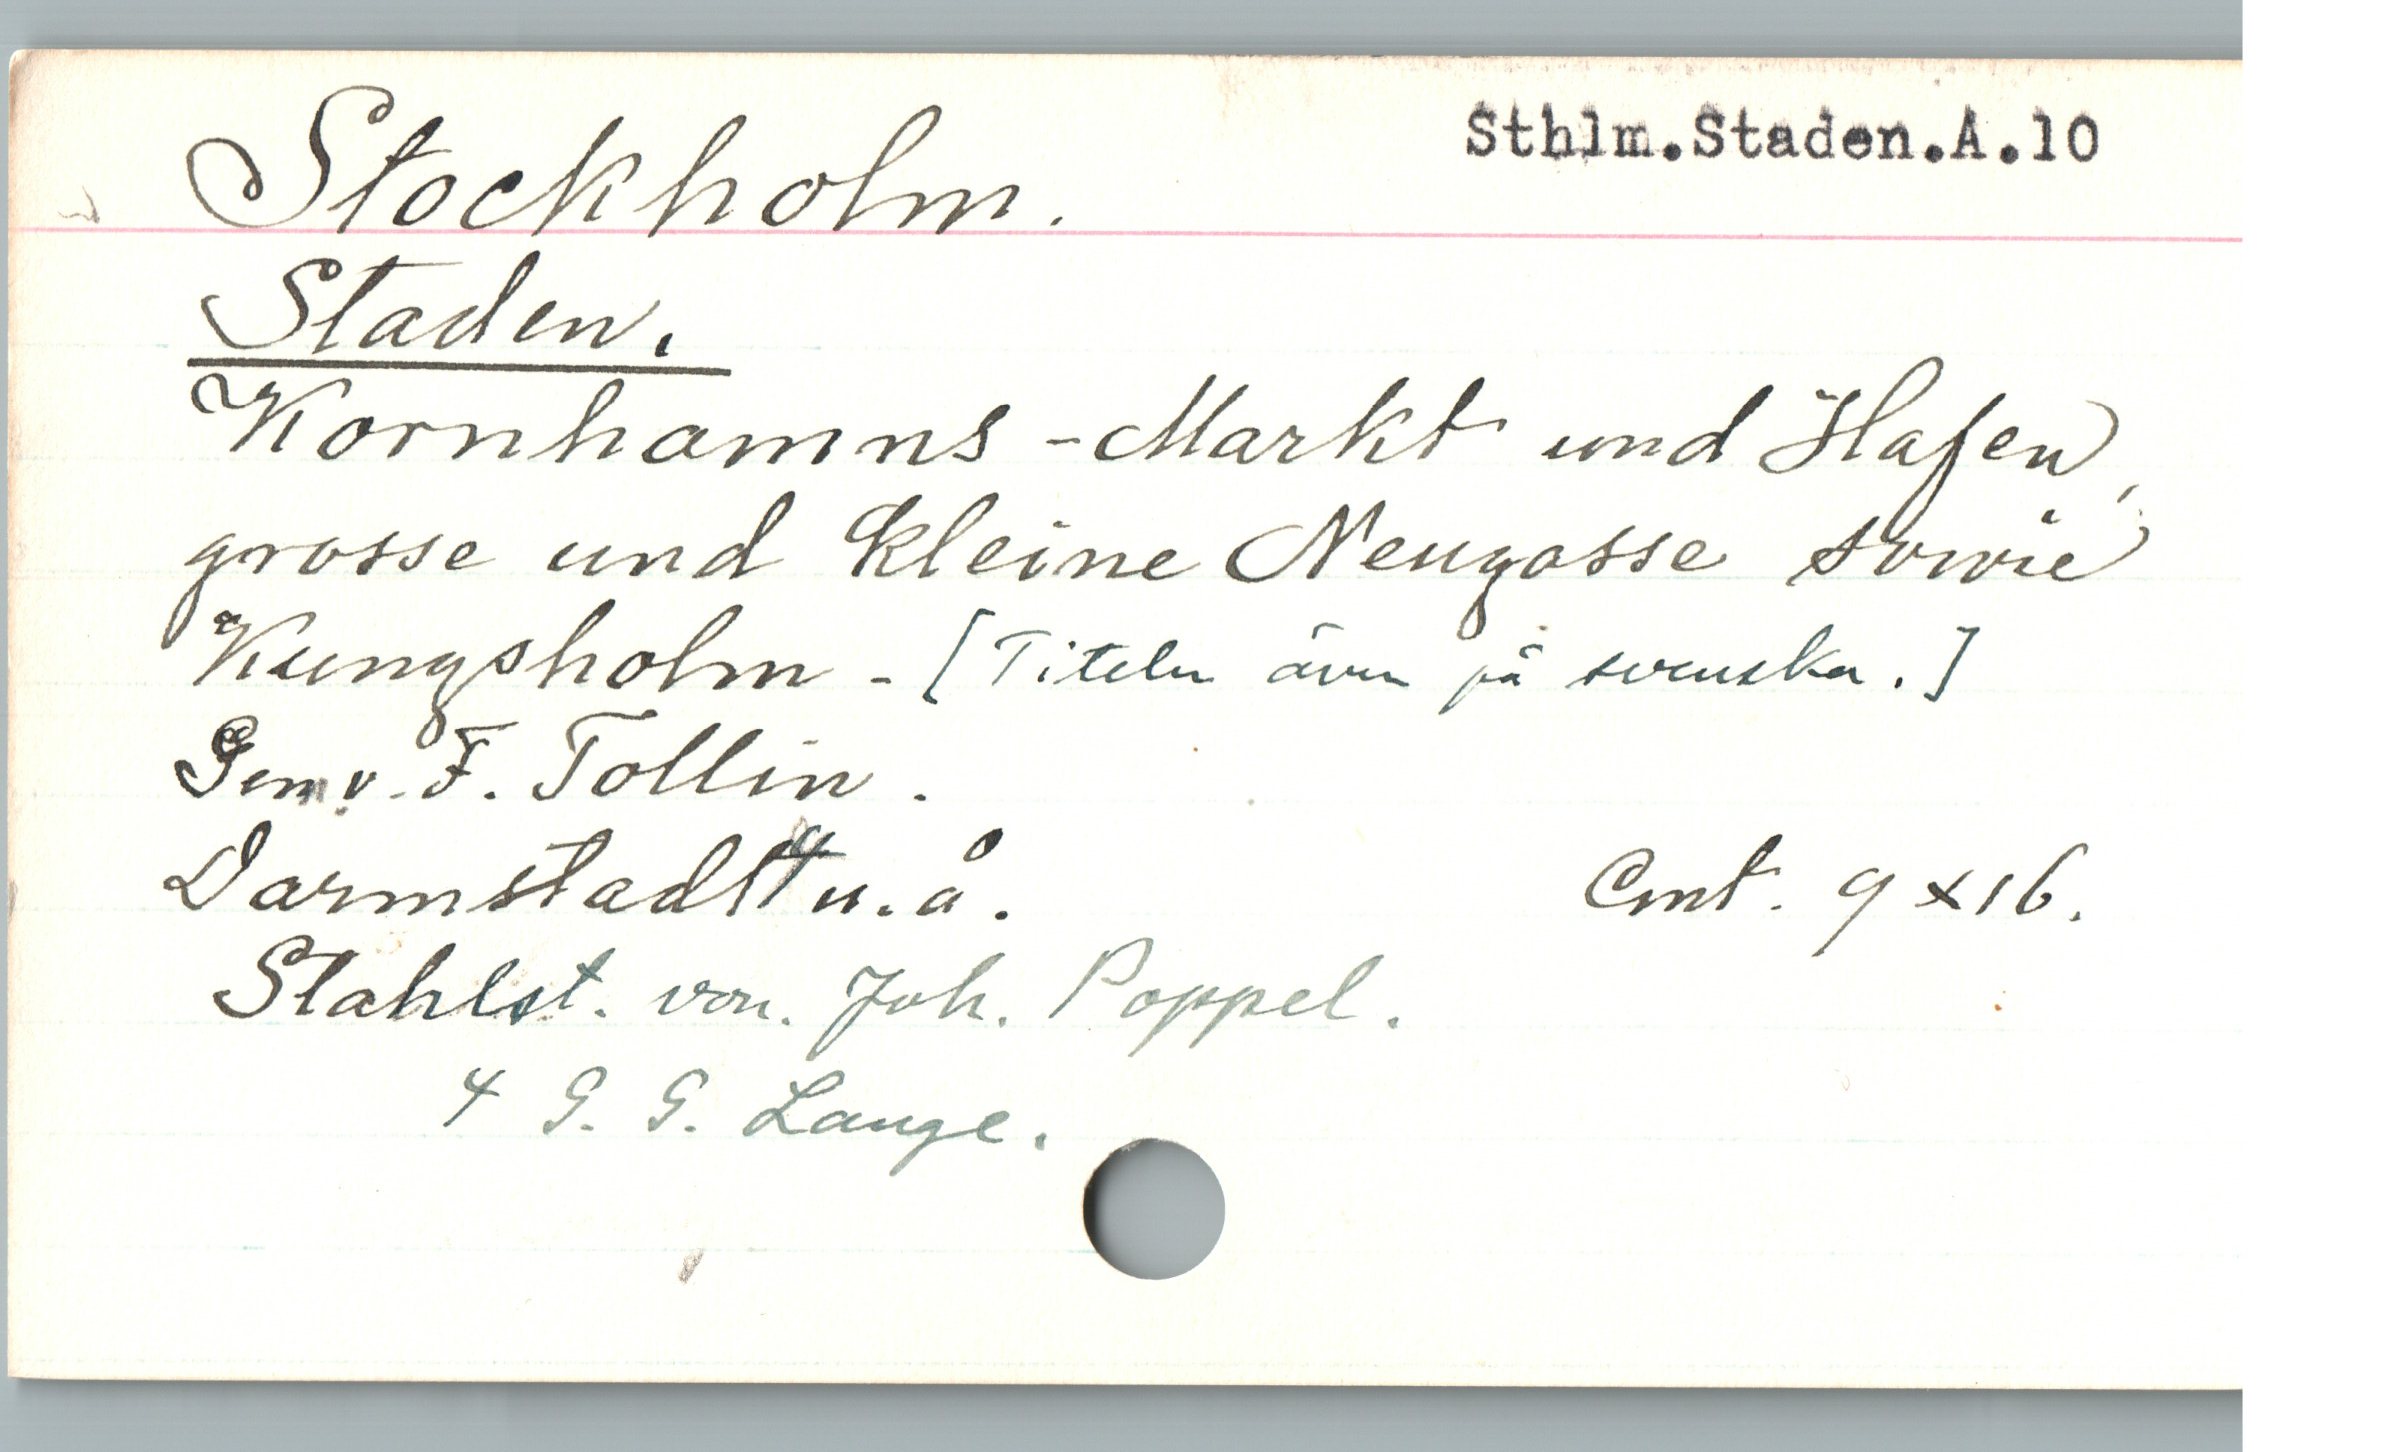 Stockholm.
Sthlm.Staden.A.10
Staden.
Kornhamns-Markt und Hafen,
grosse und kleine Neugasse sowie
Kungsholm - [Titeln även på svenska.]
Gem. v. F. Tollin.
Darmstadt u. å. Cmt. 9 x 16.
Stahlst. von. Joh. Poppel.
G. G. Lange.